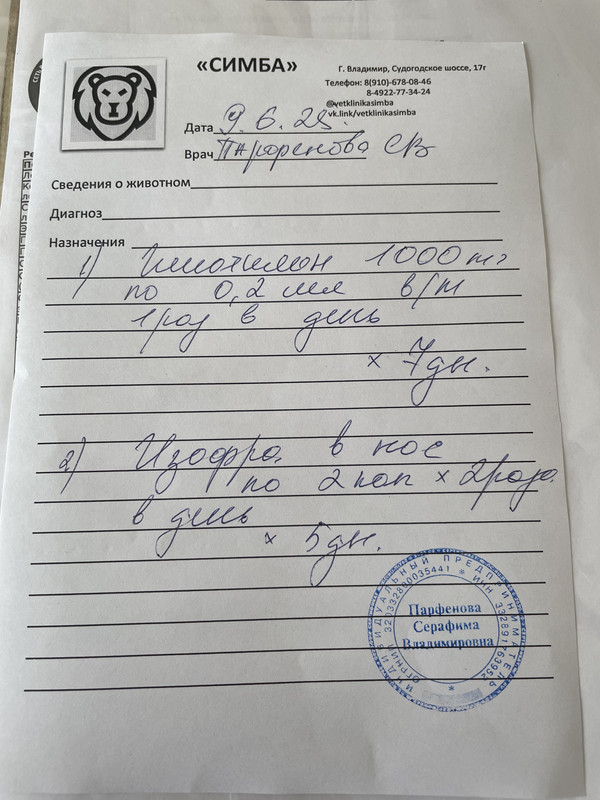 «СИМБА»
Г. Владимир, Судогодское шоссе, 17г
Телефон: 8(910)-678-08-46
8-4922-77-34-24
@vetklinikasimba
vk.link/vetklinikasimba
Дата 9.6.25.
Врач Парфенова СВ
Сведения о животном
Диагноз
Назначения
1) 1000 мг
по 0,2 мл в/м
1 раз в день
× 7 дн.
2) Изофра в нос
по 2 кап × 2 раза
в день
× 5 дн.
ИНДИВИДУАЛЬНЫЙ ПРЕДПРИНИМАТЕЛЬ
Парфенова
Серафима
Владимировна